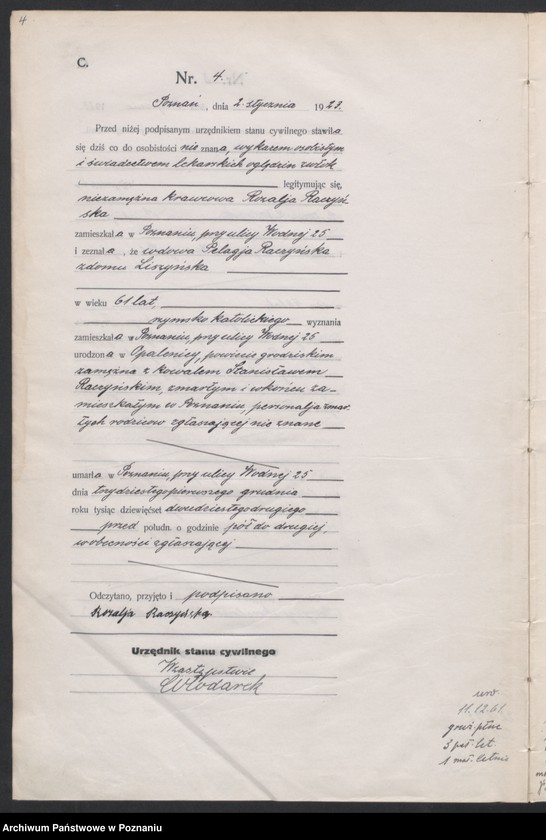 4
C.
Nr. 4.
Poznań, dnia 2 stycznia 1923.
Przed niżej podpisanym urzędnikiem stanu cywilnego stawiła
się dziś co do osobistości nie znana, wykazem osobistym
i świadectwem lekarskich oględzin zwłok
legitymując się,
niezamężna krawcowa Rozalja Raczyń
ska
zamieszkała w Poznaniu, przy ulicy Wodnej 25
i zeznała, że wdowa Pelagja Raczyńska
z domu Liszyńska
w wieku 61 lat,
rzymsko katolickiego wyznania
zamieszkała w Poznaniu, przy ulicy Wodnej 25
urodzona w Opalenicy, powiecie grodziskim
zamężna z kowalem Stanisławem
Raczyńskim, zmarłym i w końcu za-
mieszkałym w Poznaniu, personalja zmar-
łych rodziców zgłaszającej nie znane
umarła w Poznaniu, przy ulicy Wodnej 25
dnia trzydziestego pierwszego grudnia
roku tysiąc dziewięćset dwudziestego drugiego
przed połudn. o godzinie pół do drugiej,
w obecności zgłaszającej
Odczytano, przyjęto i podpisano
Rozalja Raczyńska
Urzędnik stanu cywilnego
W zastępstwie
Włodarek
11.12.61.
3 lat.
Archiwum Państwowe w Poznaniu